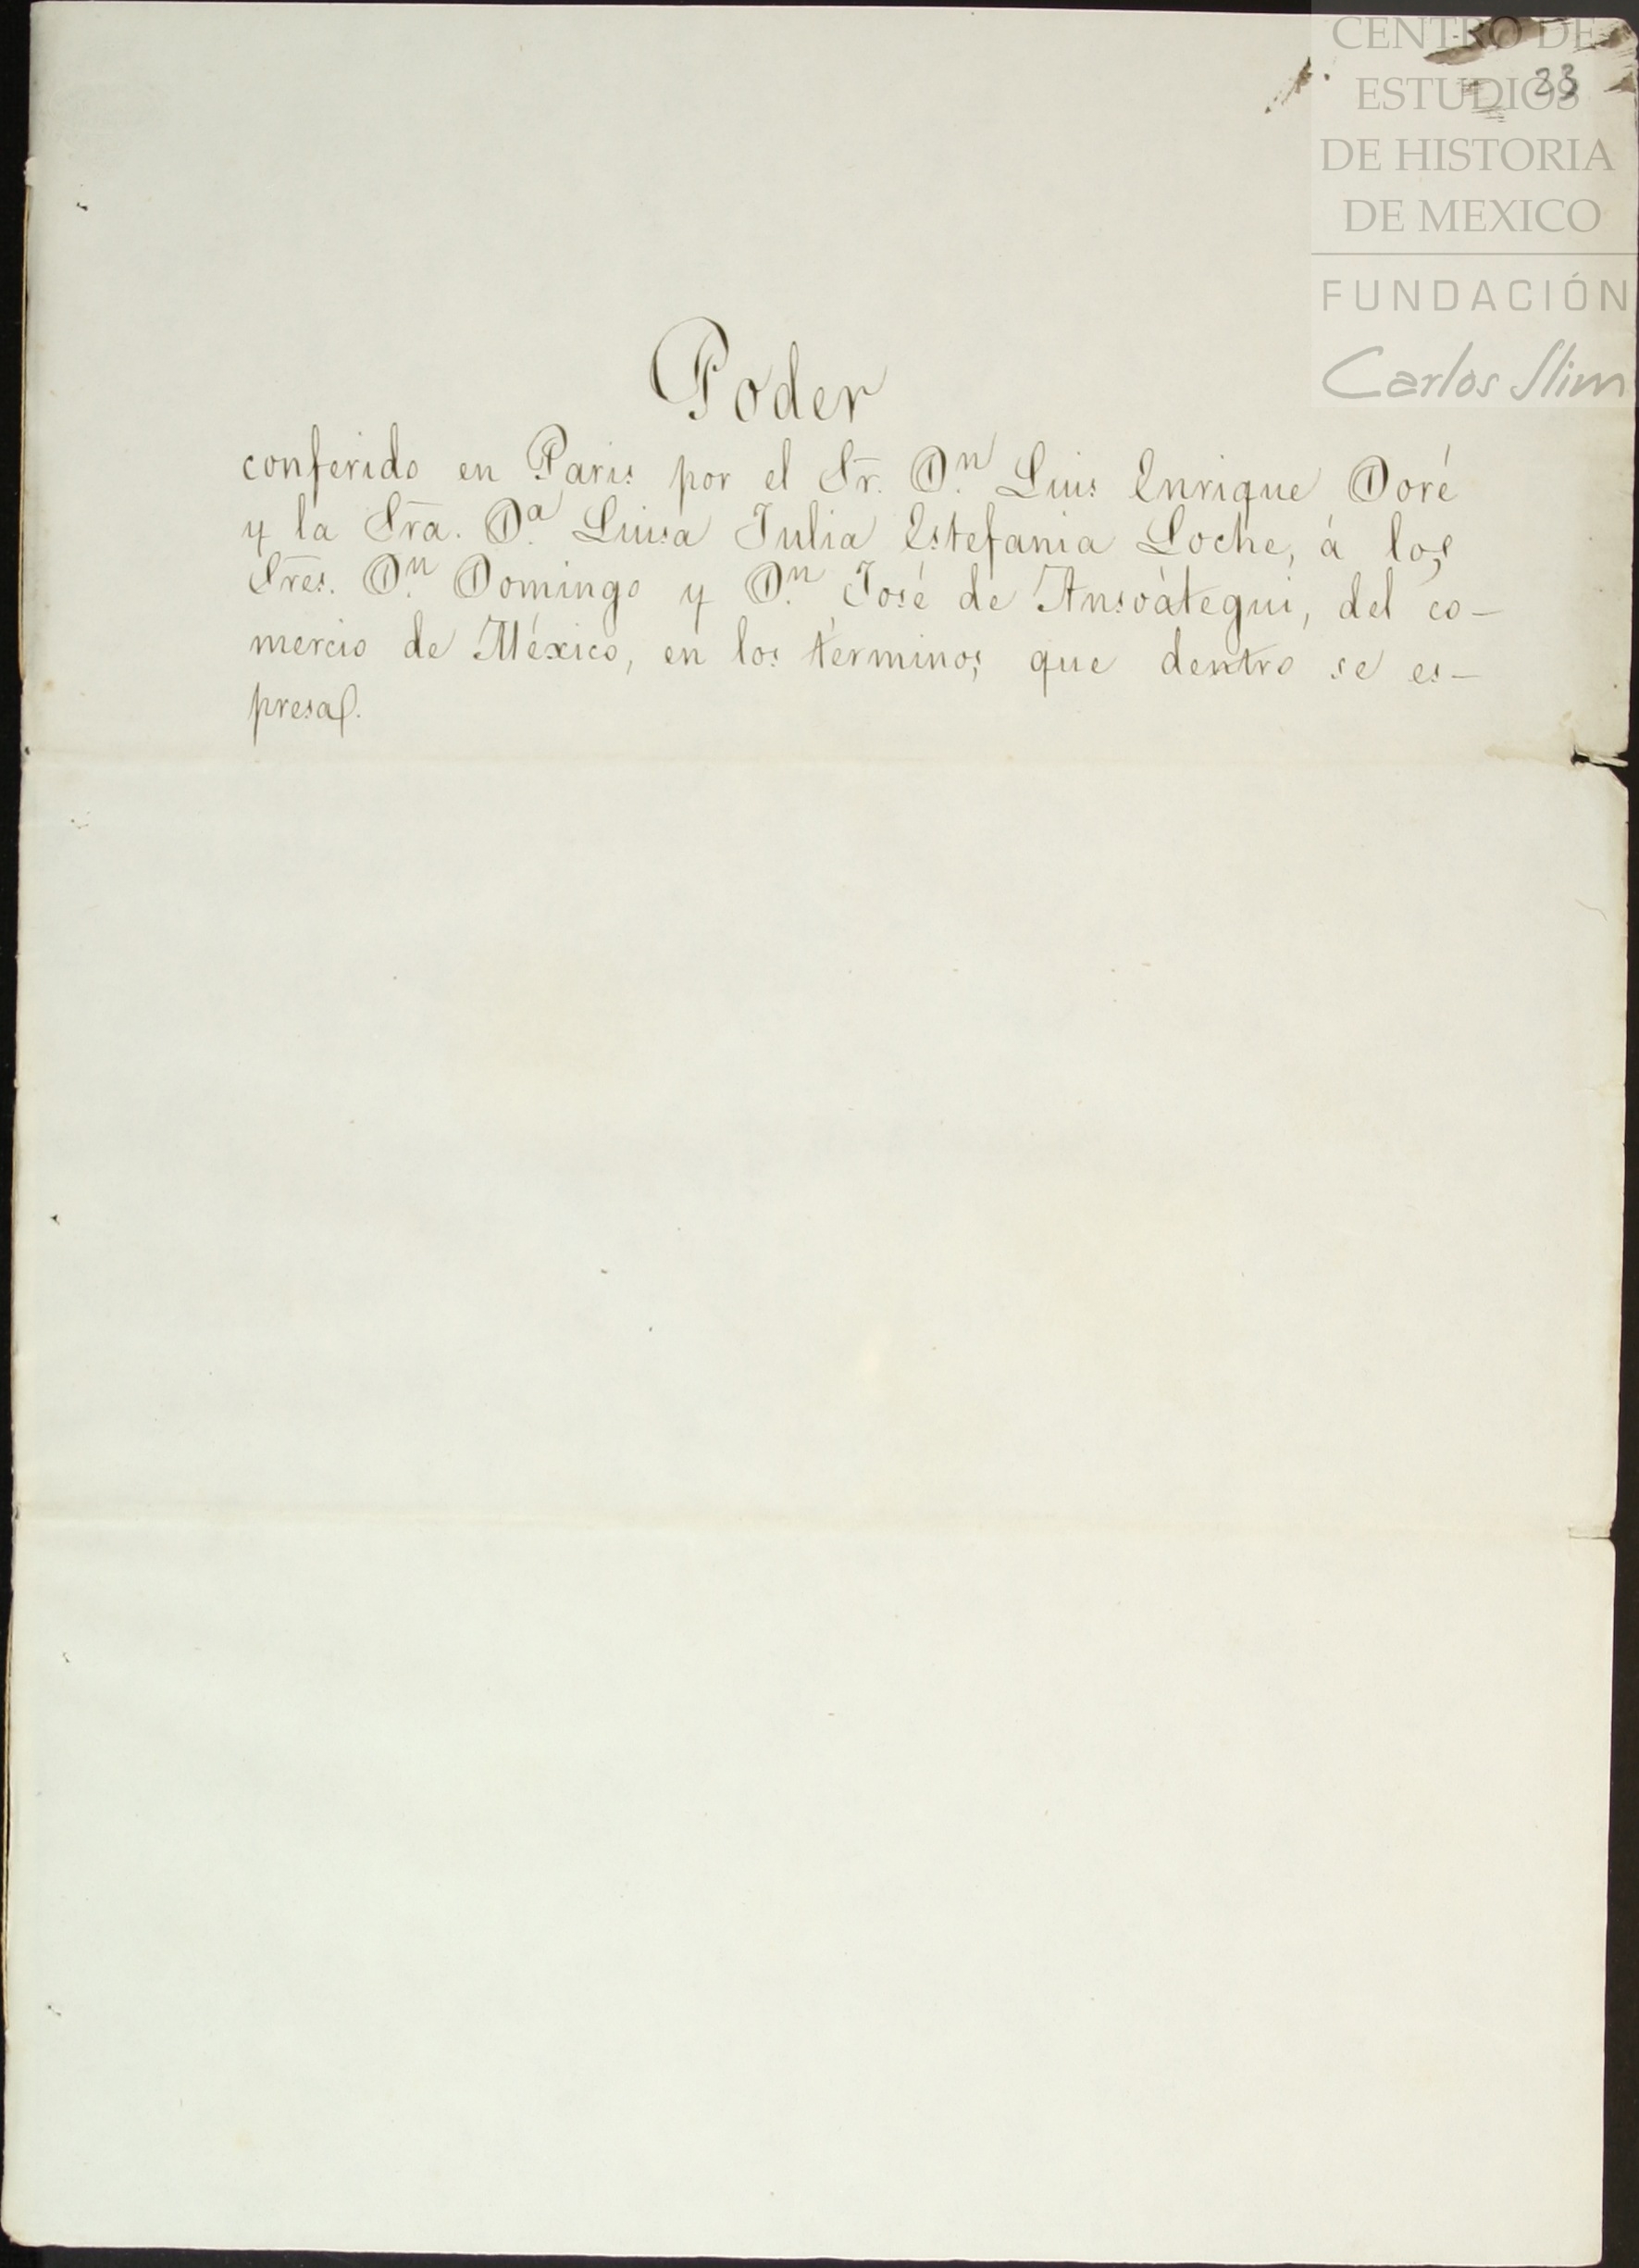 CENTRO DE
ESTUDIOS
DE HISTORIA
DE MEXICO
FUNDACIÓN
Carlos Slim
33
Poder
conferido en Paris por el Sr. Dn. Luis Enrique Doré
y la Sra. Da. Luisa Julia Estefania Loche, á los
Sres. Dn. Domingo y Dn. José de Ansoátegui, del co-
mercio de México, en los términos que dentro se es-
presan.